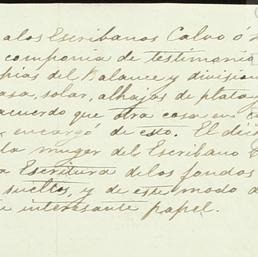 alos Escribanos Calvo ó
compania de testimonio
pias del Balance y division
asa, solar, alhajas de plata
acuerdo que otra cosa en
encargó de esto. El dic
la muger del Escribano
a Escritura de los fondos
sueltos, y de este modo
interesante papel.